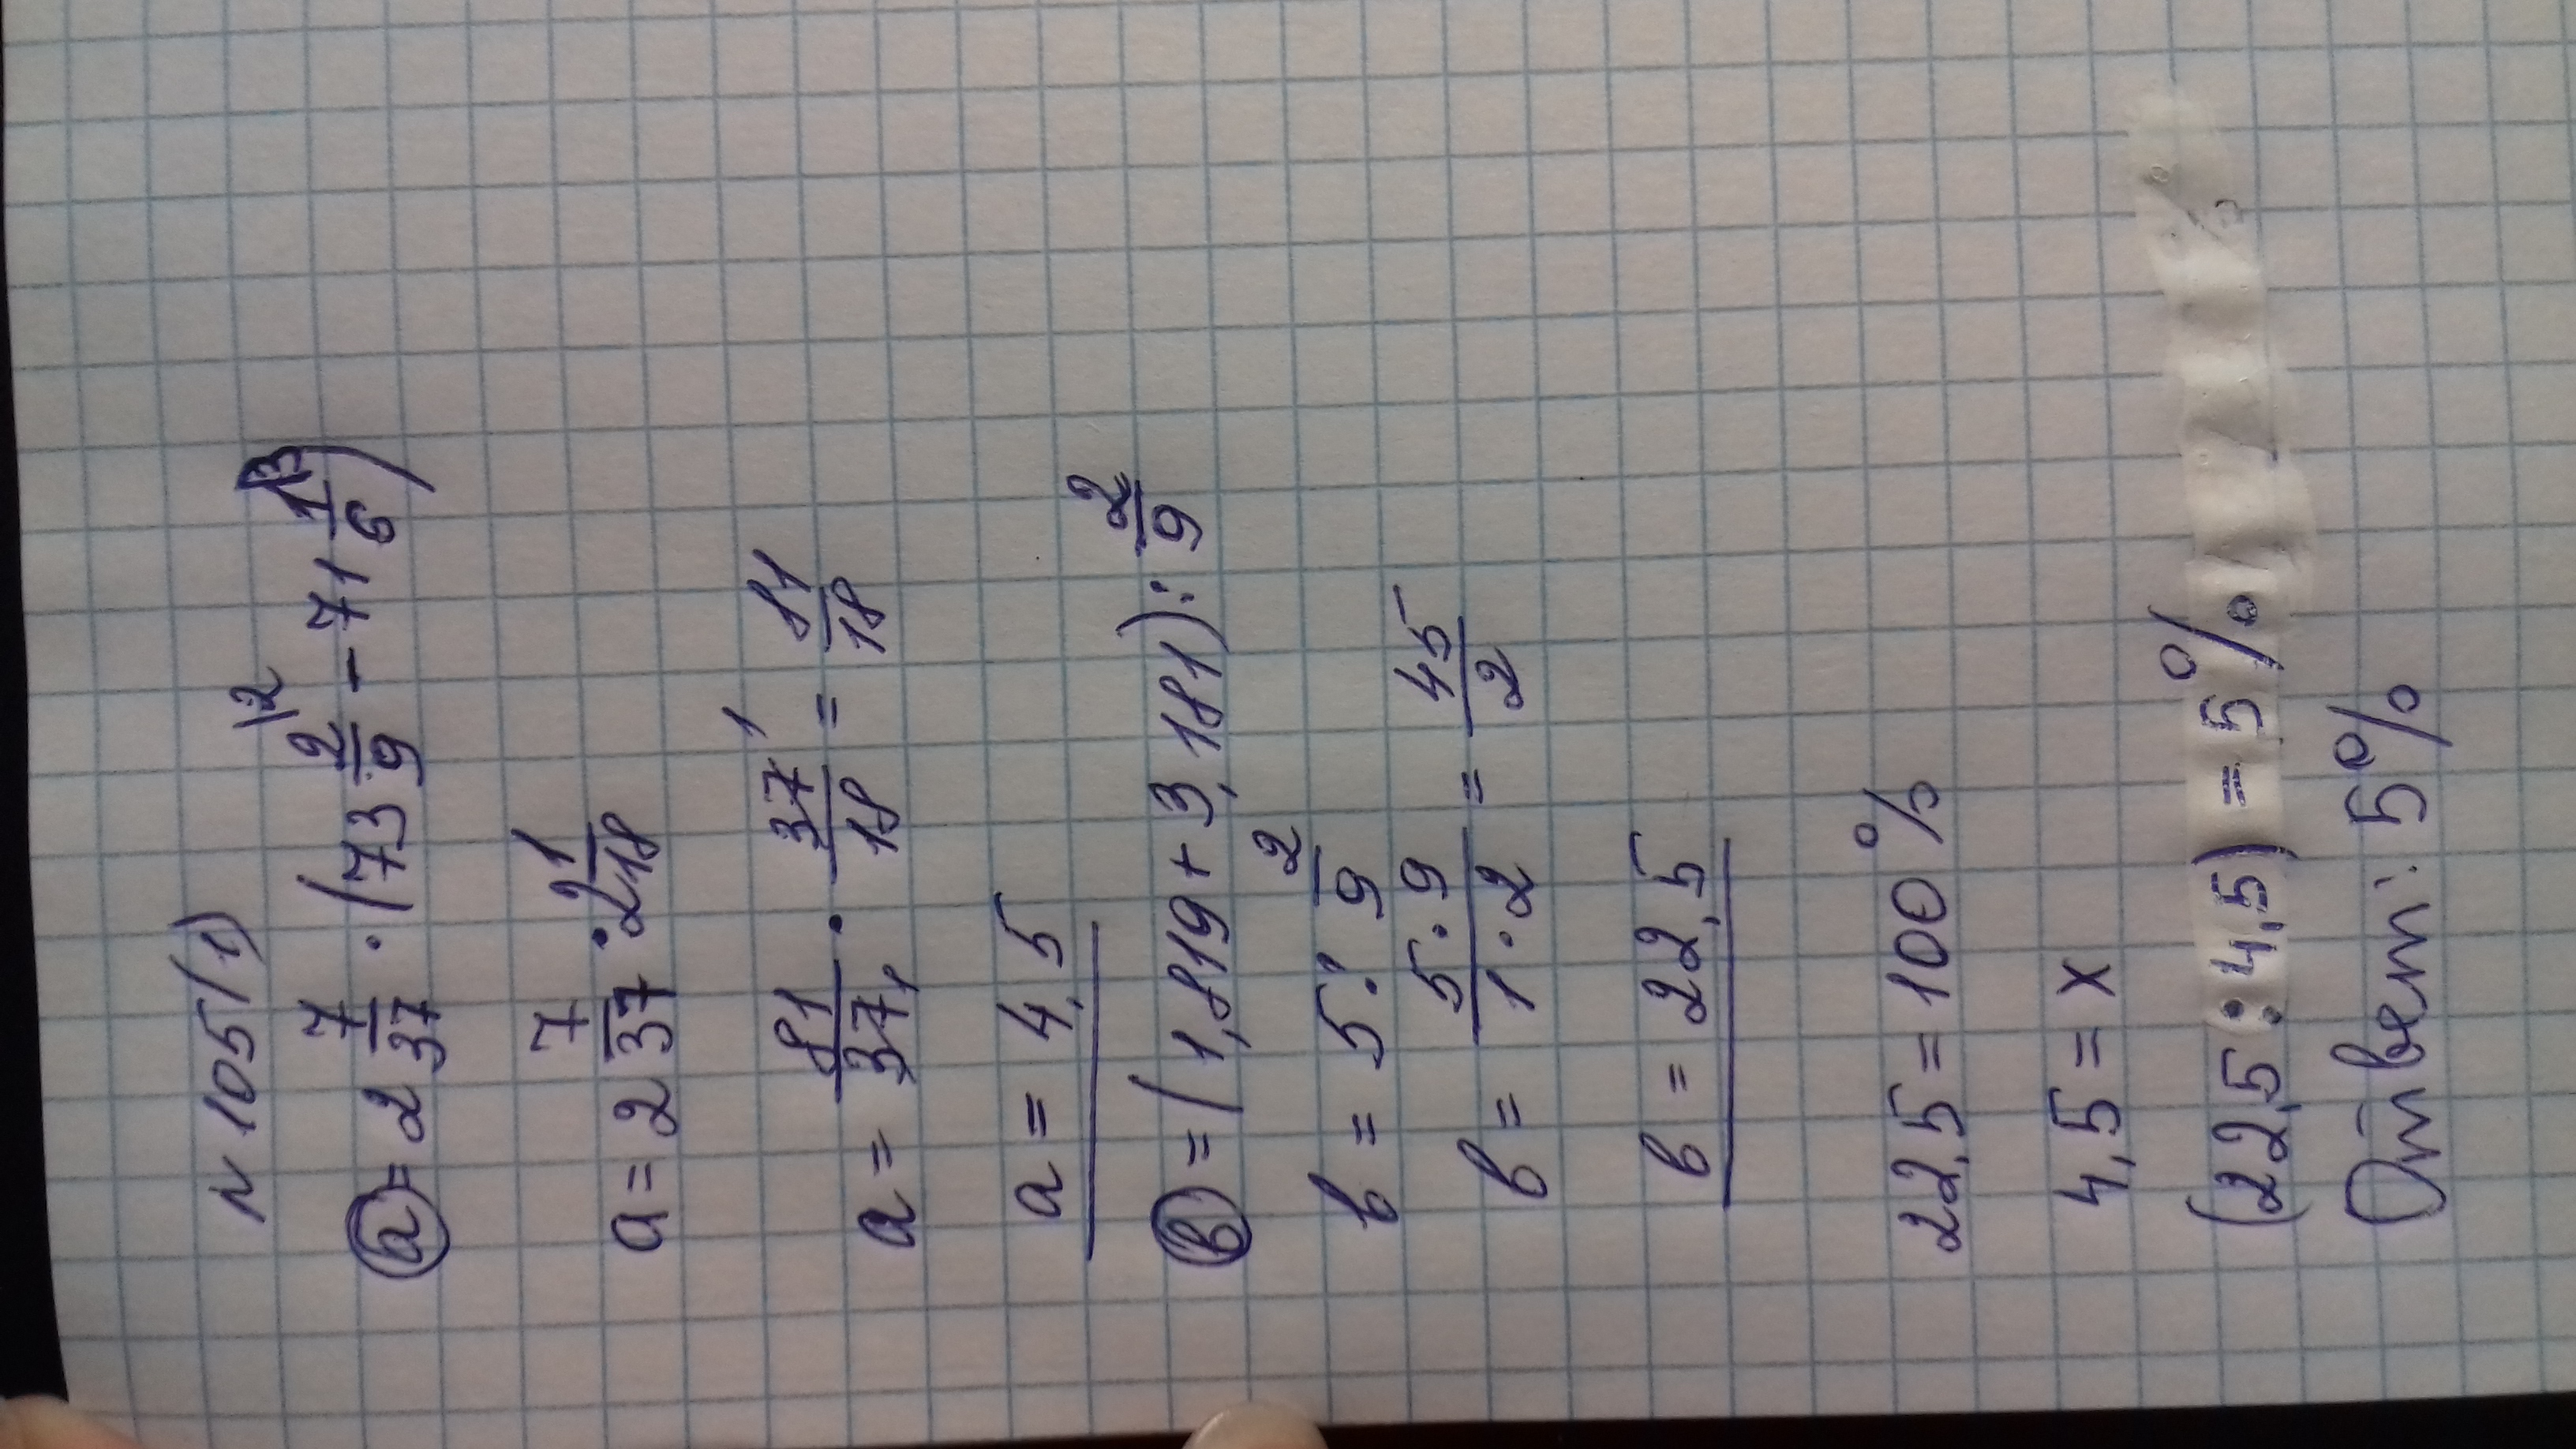 N 105(1)
а = 2 7/37 · (73 2/9 \2 - 71 1/6 \3)
а = 2 7/37 · 2 1/18
а = 81/37 1 · 37 1/18 = 81/18
а = 4,5
в = (1,819 + 3,181) : 2/9
в = 5 : 2/9
в = 5·9/1·2 = 45/2
в = 22,5
22,5 = 100%
4,5 = x
(22,5 : 4,5) = 5%
Ответ: 5%